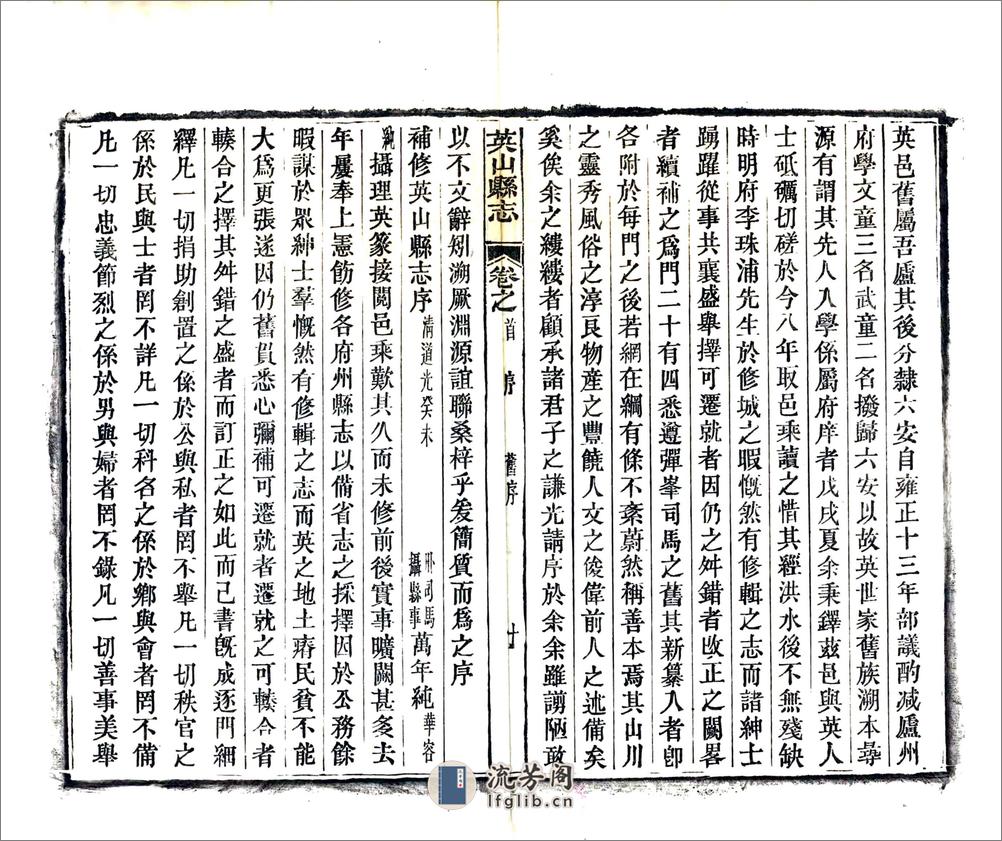 英邑舊屬吾廬其後分隸六安自雍正十三年部議酌减廬州
府學文童三名武童二名撥歸六安以故英世家舊族溯本尋
源有謂其先人入學係屬府庠者戊戌夏余秉鐸茲邑與英人
士砥礪切磋於今八年取邑乘讀之惜其經洪水後不無殘缺
時明府李珠浦先生於修城之暇慨然有修輯之志而諸紳士
踴躍從事共襄盛舉擇可遷就者因仍之舛錯者改正之闕畧
者續補之爲門二十有四悉遵彈峯司馬之舊其新纂入者卽
各附於每門之後若網在綱有條不紊蔚然稱善本焉其山川
之靈秀風俗之淳良物産之豐饒人文之俊偉前人之述備矣
奚俟余之縷縷者顧承諸君子之謙光請序於余余雖謭陋敢
以不文辭矧溯厥淵源誼聯桑梓乎爰簡質而爲之序
補修英山縣志序 清道光癸未 攝縣事 萬年純 華容
純攝理英篆接閲邑乘歎其久而未修前後實事曠闕甚多去
年屢奉上憲飭修各府州縣志以備省志之採擇因於公務餘
暇謀於眾紳士羣慨然有修輯之志而英之地土瘠民貧不能
大爲更張遂因仍舊貫悉心彌補可遷就者遷就之可輳合者
輳合之擇其舛錯之盛者而訂正之如此而已書旣成逐門細
繹凡一切捐助創置之係於公與私者罔不舉凡一切秩官之
係於民與士者罔不詳凡一切科名之係於鄉與會者罔不備
凡一切忠義節烈之係於男與婦者罔不錄凡一切善事美舉
英山縣志 卷之首 序 舊序 廿
流芳阁
lfglib.cn